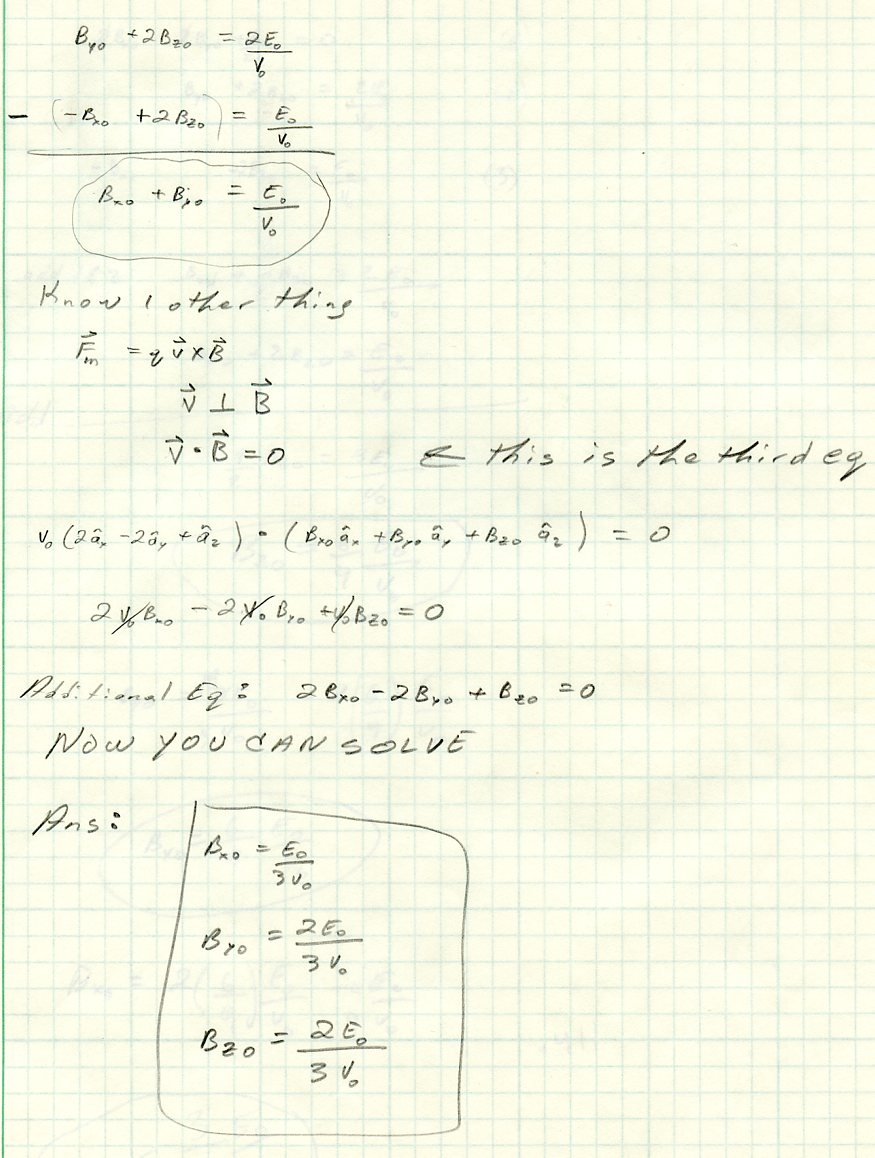 B_y0 + 2B_z0 = 2E_0/V_0
- (-B_x0 + 2B_z0) = E_0/V_0
B_x0 + B_y0 = E_0/V_0
Know 1 other thing
F⃗_m = q v⃗ × B⃗
v⃗ ⊥ B⃗
v⃗ · B⃗ = 0 ← this is the third eq
v_0 (2â_x - 2â_y + â_z) · (B_x0 â_x + B_y0 â_y + B_z0 â_z) = 0
2V_0 B_x0 - 2V_0 B_y0 + V_0 B_z0 = 0
Additional Eq: 2B_x0 - 2B_y0 + B_z0 = 0
NOW YOU CAN SOLVE
Ans:
B_x0 = E_0/3V_0
B_y0 = 2E_0/3V_0
B_z0 = 2E_0/3V_0